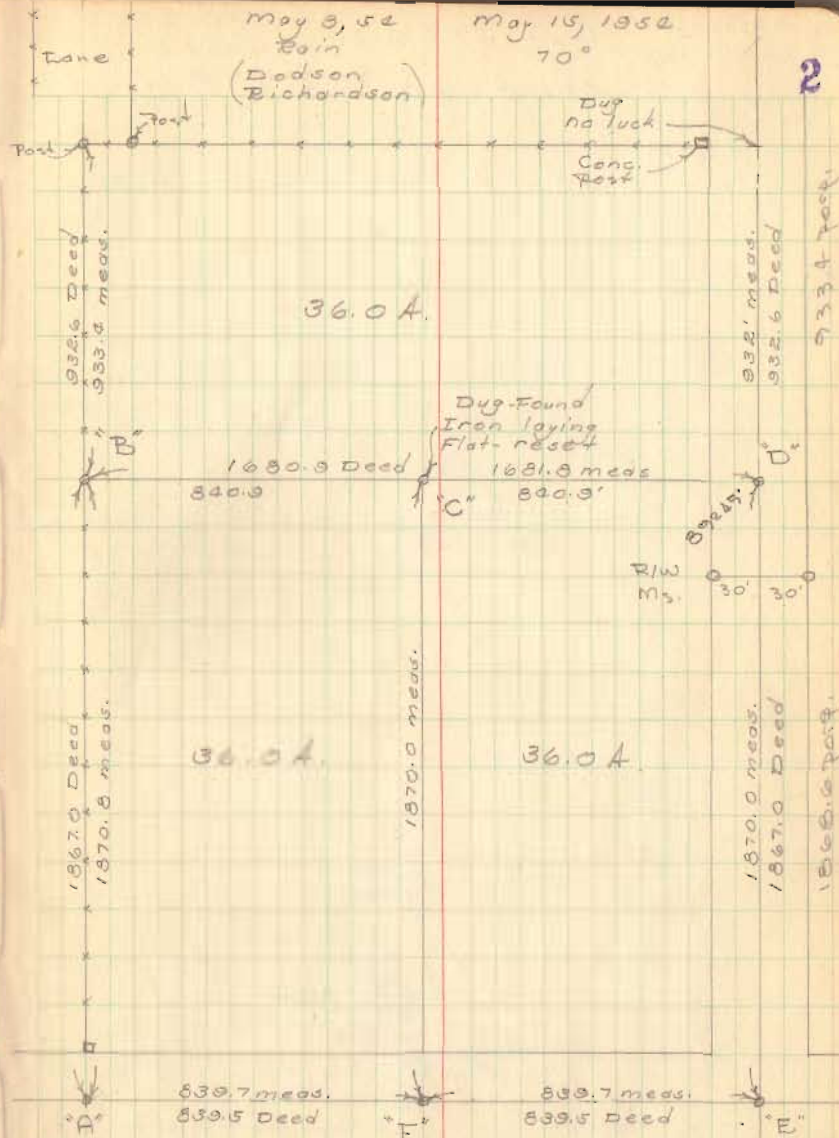 May 9, 52
May 15, 1952
Rain
70°
(Dodson
Richardson)
Lane
2
Post
Post
Dug
no luck
Conc.
Post
932.6 Deed
933.2 meas.
36.0 A.
932' meas.
932.6 Deed
933.4
Dug-Found
Iron laying
Flat-reset
"B"
1680.9 Deed
1681.8 meas
840.9
840.9'
"C"
"D"
R/W
Ms.
30'
30'
1867.0 Deed
1870.8 meas.
36.0 A.
1870.0 meas.
36.0 A
1870.0 meas.
1867.0 Deed
1868.6
839.7 meas.
839.7 meas.
"A"
839.5 Deed
"F"
839.5 Deed
"E"